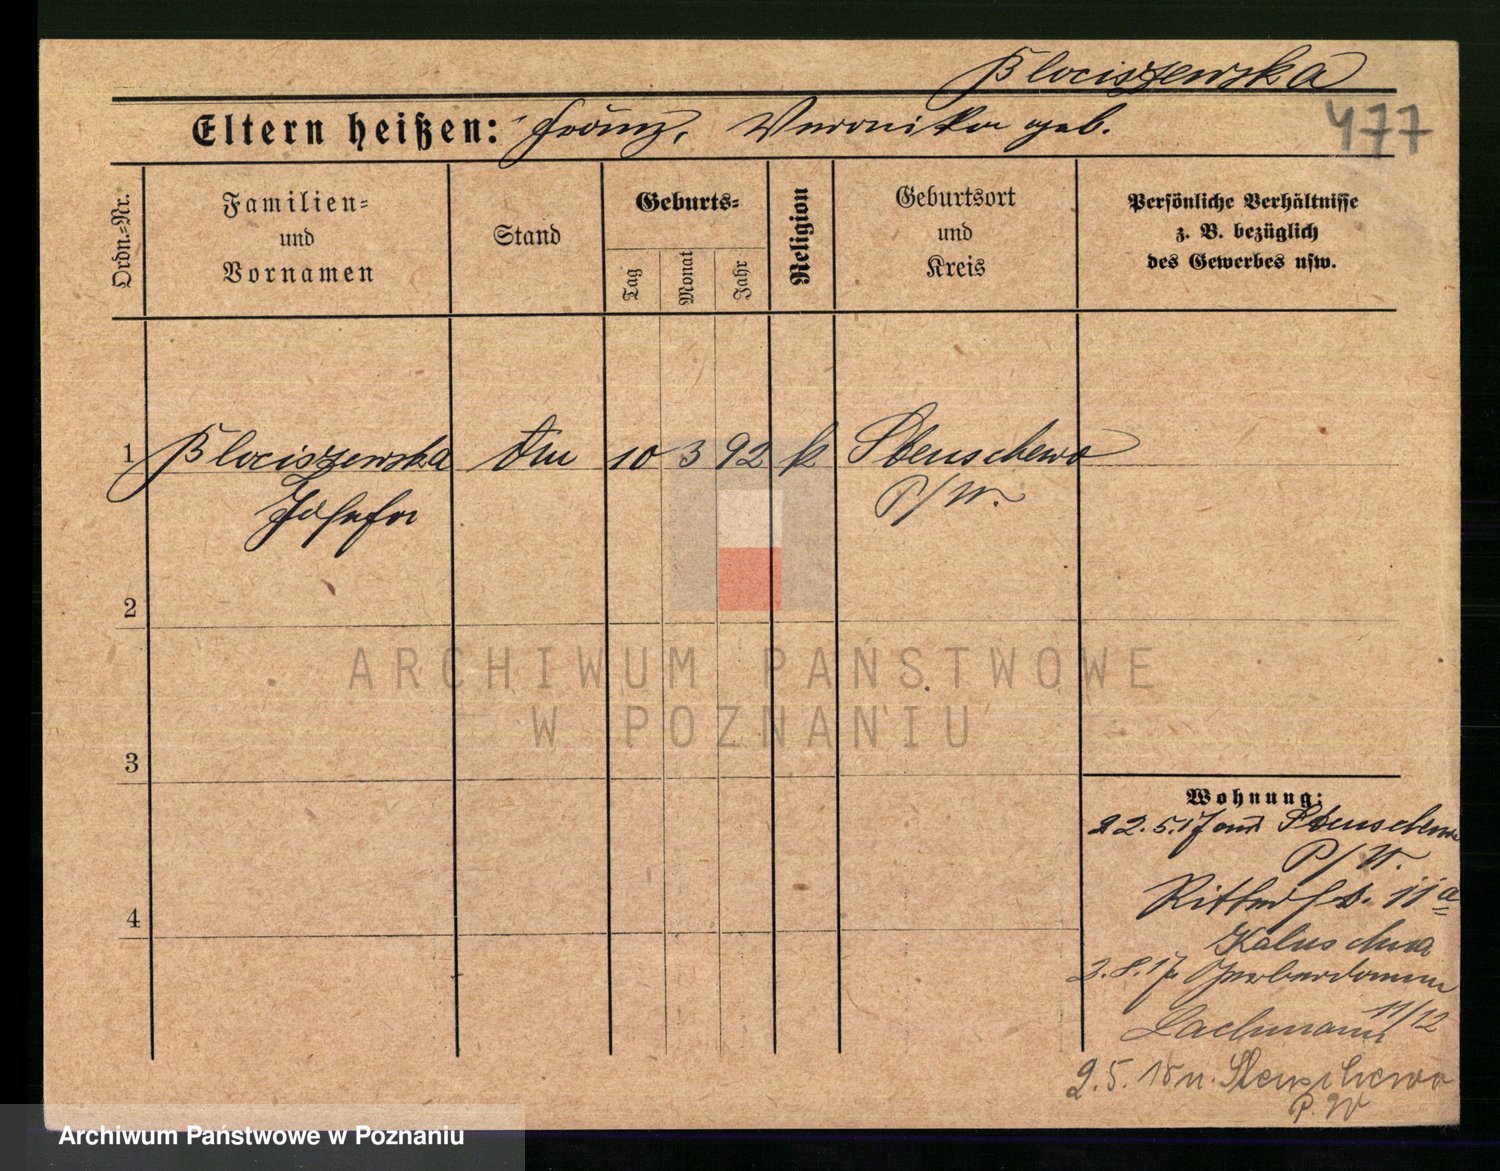 Blociszewska
Eltern heißen: Franz, Veronika geb.
477
Ordn.-Nr.
Familien-
und
Vornamen
Stand
Geburts-
Tag
Monat
Jahr
Religion
Geburtsort
und
Kreis
Persönliche Verhältnisse
z. B. bezüglich
des Gewerbes usw.
1 Blociszewska 10 3 92 k Stenschewo
Josefa P/W.
2
ARCHIWUM PAŃSTWOWE
W POZNANIU
3
4
Wohnung:
22.5.17 aus Stenschewo
P/W.
Ritterst. 11a
3.8.17 Gerberdamm
11/12
Lachmann
2.5.18 n. Stenschewo
P. W
Archiwum Państwowe w Poznaniu